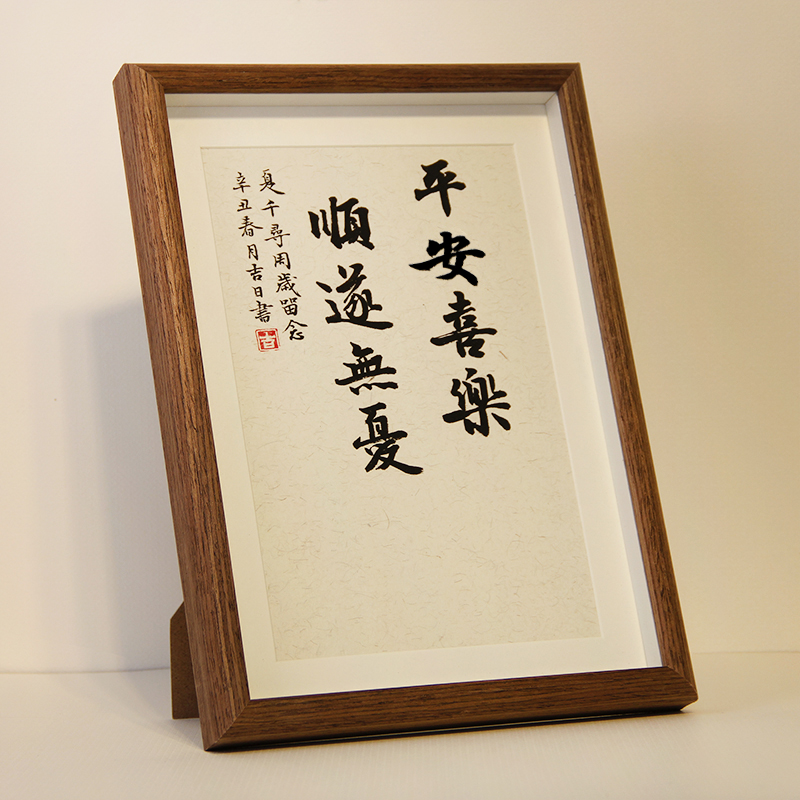 平安喜樂
順遂無憂
夏千尋周歲留念
辛丑春月吉日書
吉